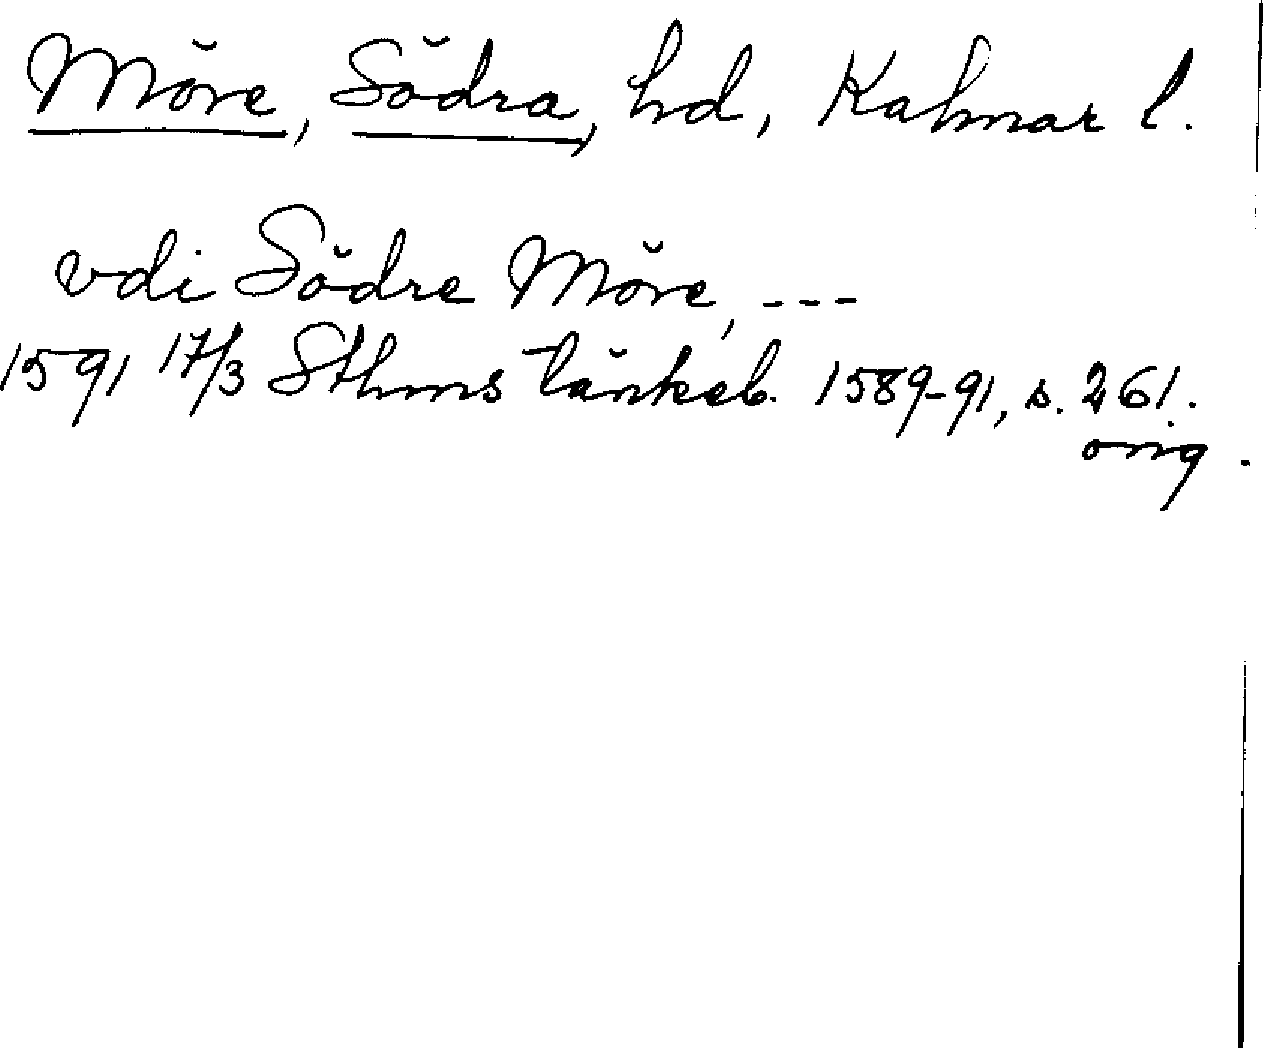 Möre, Södra, hd, Kalmar l.
vdi Södre Möre, ---
1591 17/3 Sthms tänkeb. 1589-91, s. 261.
orig.